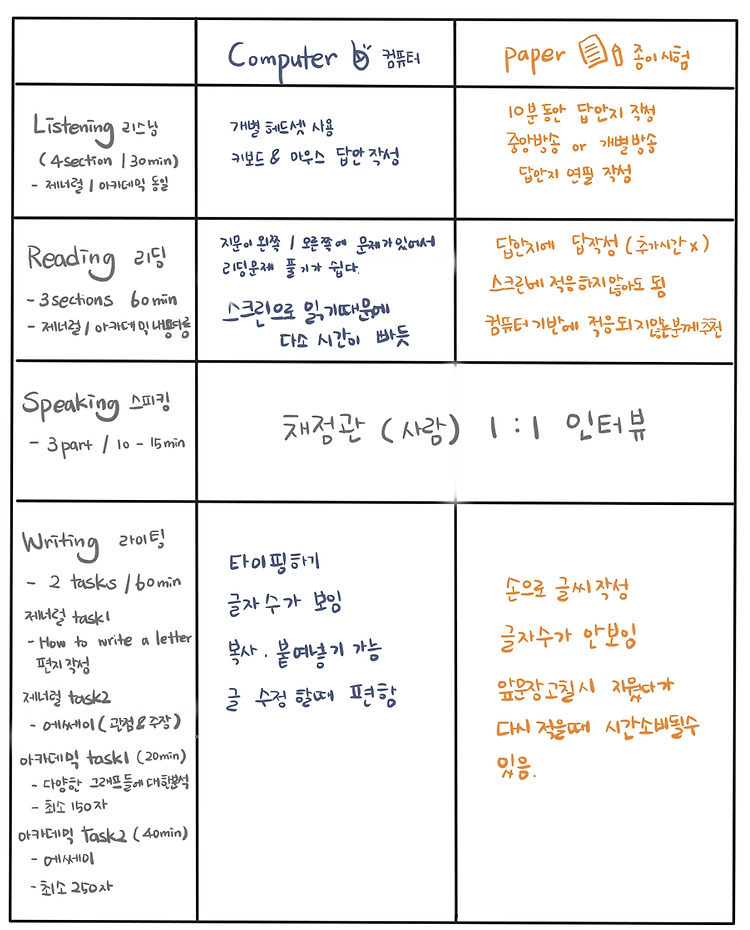 Computer 컴퓨터
paper 종이시험
Listening 리스닝
(4section / 30min)
- 제너럴 / 아카데믹 동일
개별 헤드셋 사용
키보드 & 마우스 답안작성
10분동안 답안지 작성
중앙방송 or 개별방송
답안지 연필 작성
Reading 리딩
- 3sections 60min
- 제너럴 / 아카데믹 내용다름
지문이 왼쪽 / 오른쪽에 문제가 있어서
리딩문제 풀기가 쉽다.
스크린으로 읽기때문에
다소 시간이 빠듯
답안지에 답작성 (추가시간 x)
스크린에 적응하지않아도 됨
컴퓨터기반에 적응되지않는분께추천
Speaking 스피킹
- 3part / 10 - 15min
채점관 (사람) 1:1 인터뷰
Writing 라이팅
- 2 tasks / 60min
제너럴 task1
- How to write a letter
편지작성
제너럴 task2
- 에쎄이 (관점&주장)
아카데믹 task1 (20min)
- 다양한 그래프들에대한분석
- 최소 150자
아카데믹 Task2 (40min)
- 에쎄이
- 최소 250자
타이핑하기
글자수가 보임
복사. 붙여넣기 가능
글 수정 할때 편함
손으로 글씨작성
글자수가 안보임
앞문장고칠시 지웠다가
다시 적을때 시간소비될수
있음.